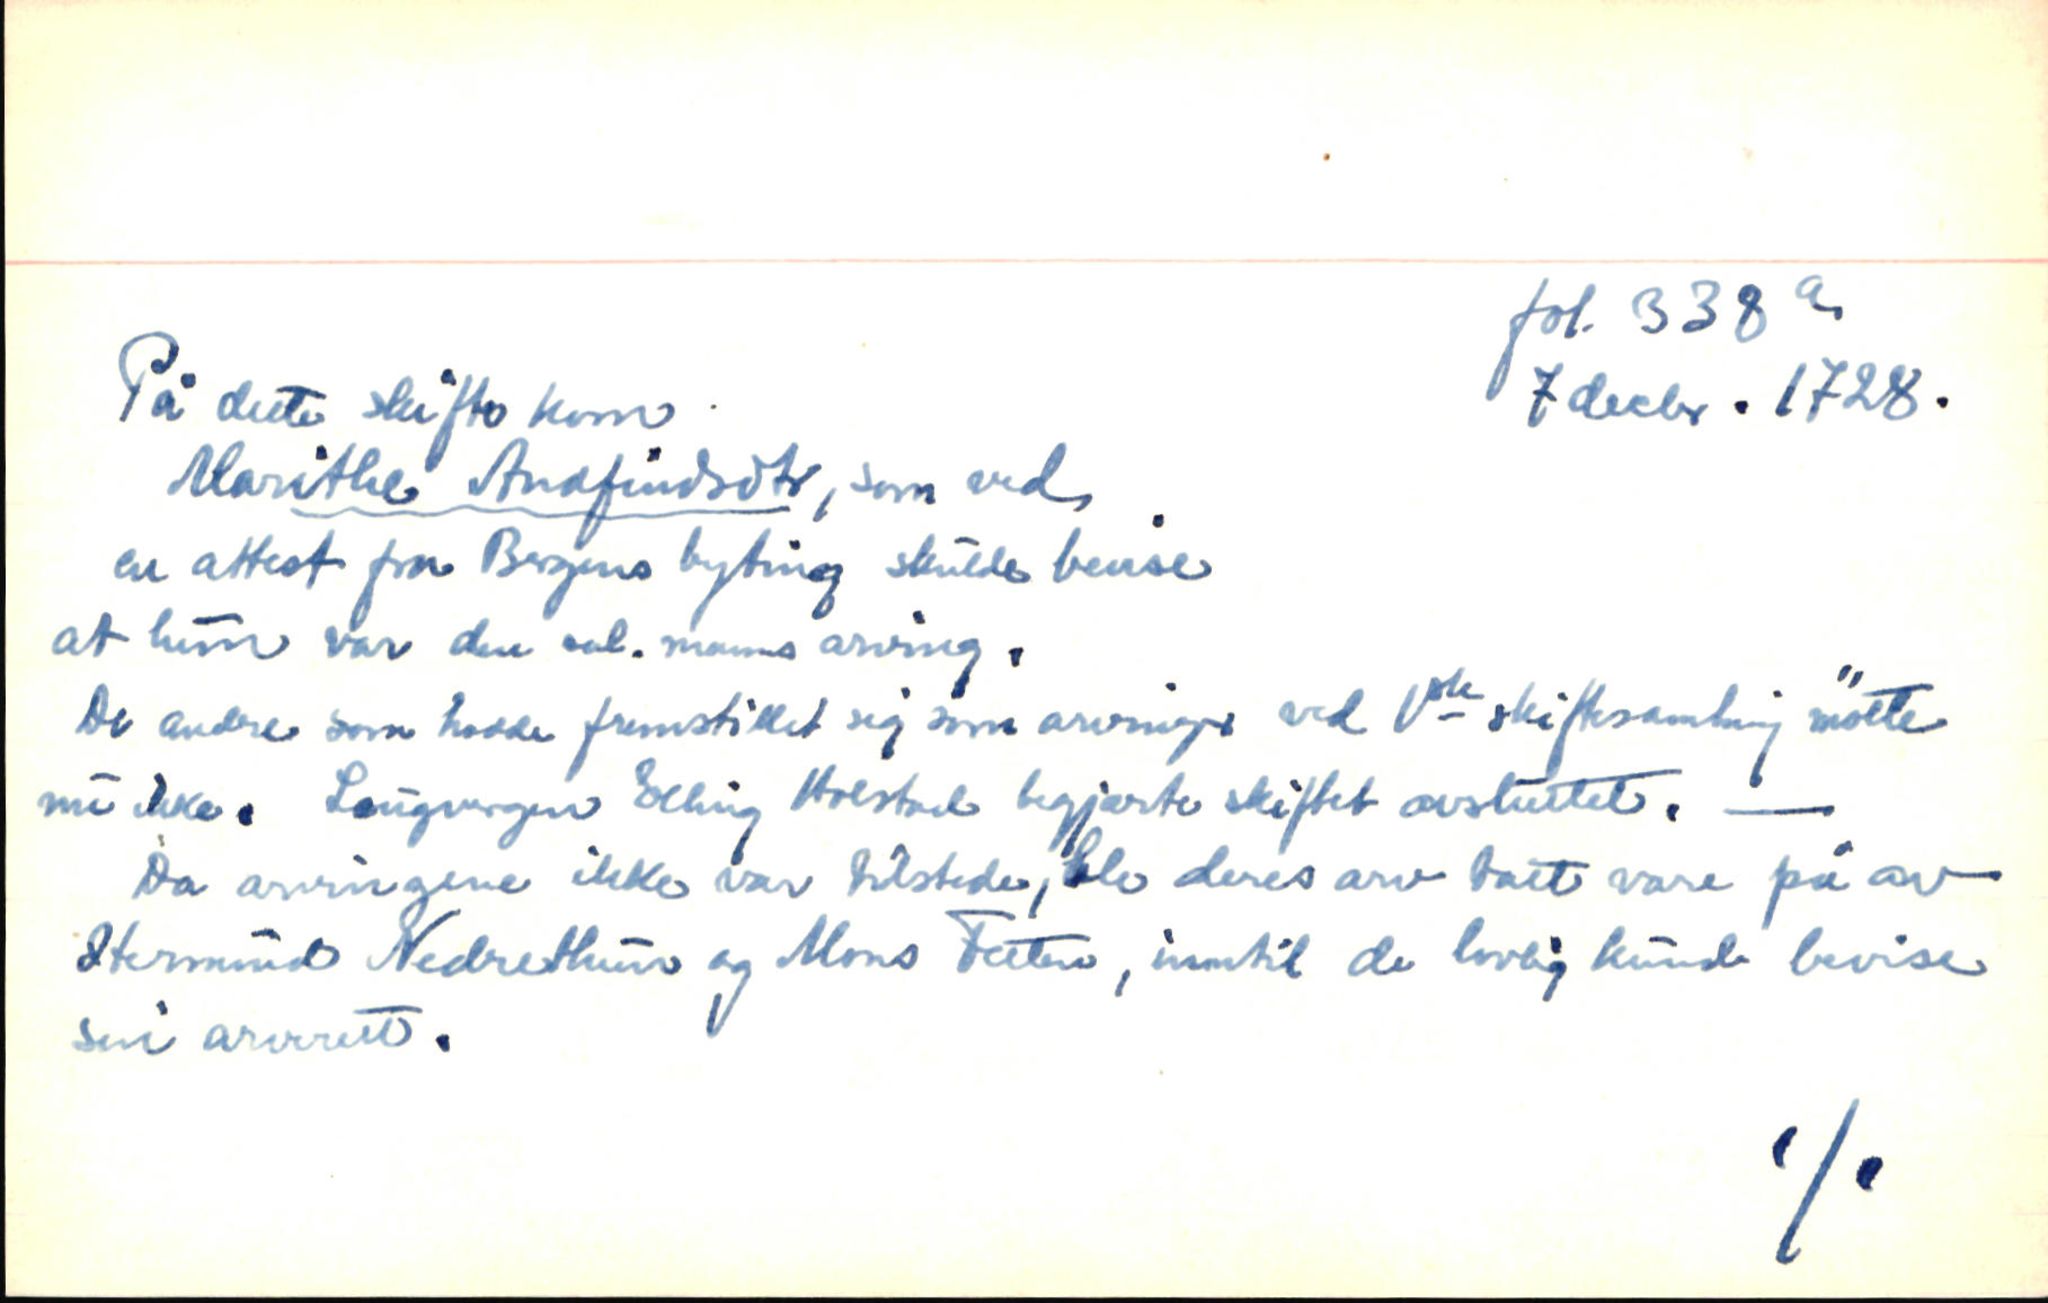 fol. 338 a
7 decbr. 1728.
På dette skifte kom
Marithe Andfindsdtr, som ved
en attest fra Bergens byting skulde bevise
at hun var den sal. manns arving.
De andre som hadde fremstillet sig som arvinger ved 1ste skiftesamling møtte
nu ikke. Laugvergen Elling Holstad begjærte skiftet avsluttet. —
Da arvingene ikke var tilstede, ble deres arv tatt vare på av
Stermund Nedrethun og Mons Feeten, inntil de lovlig kunde bevise
sin arverett.
./.